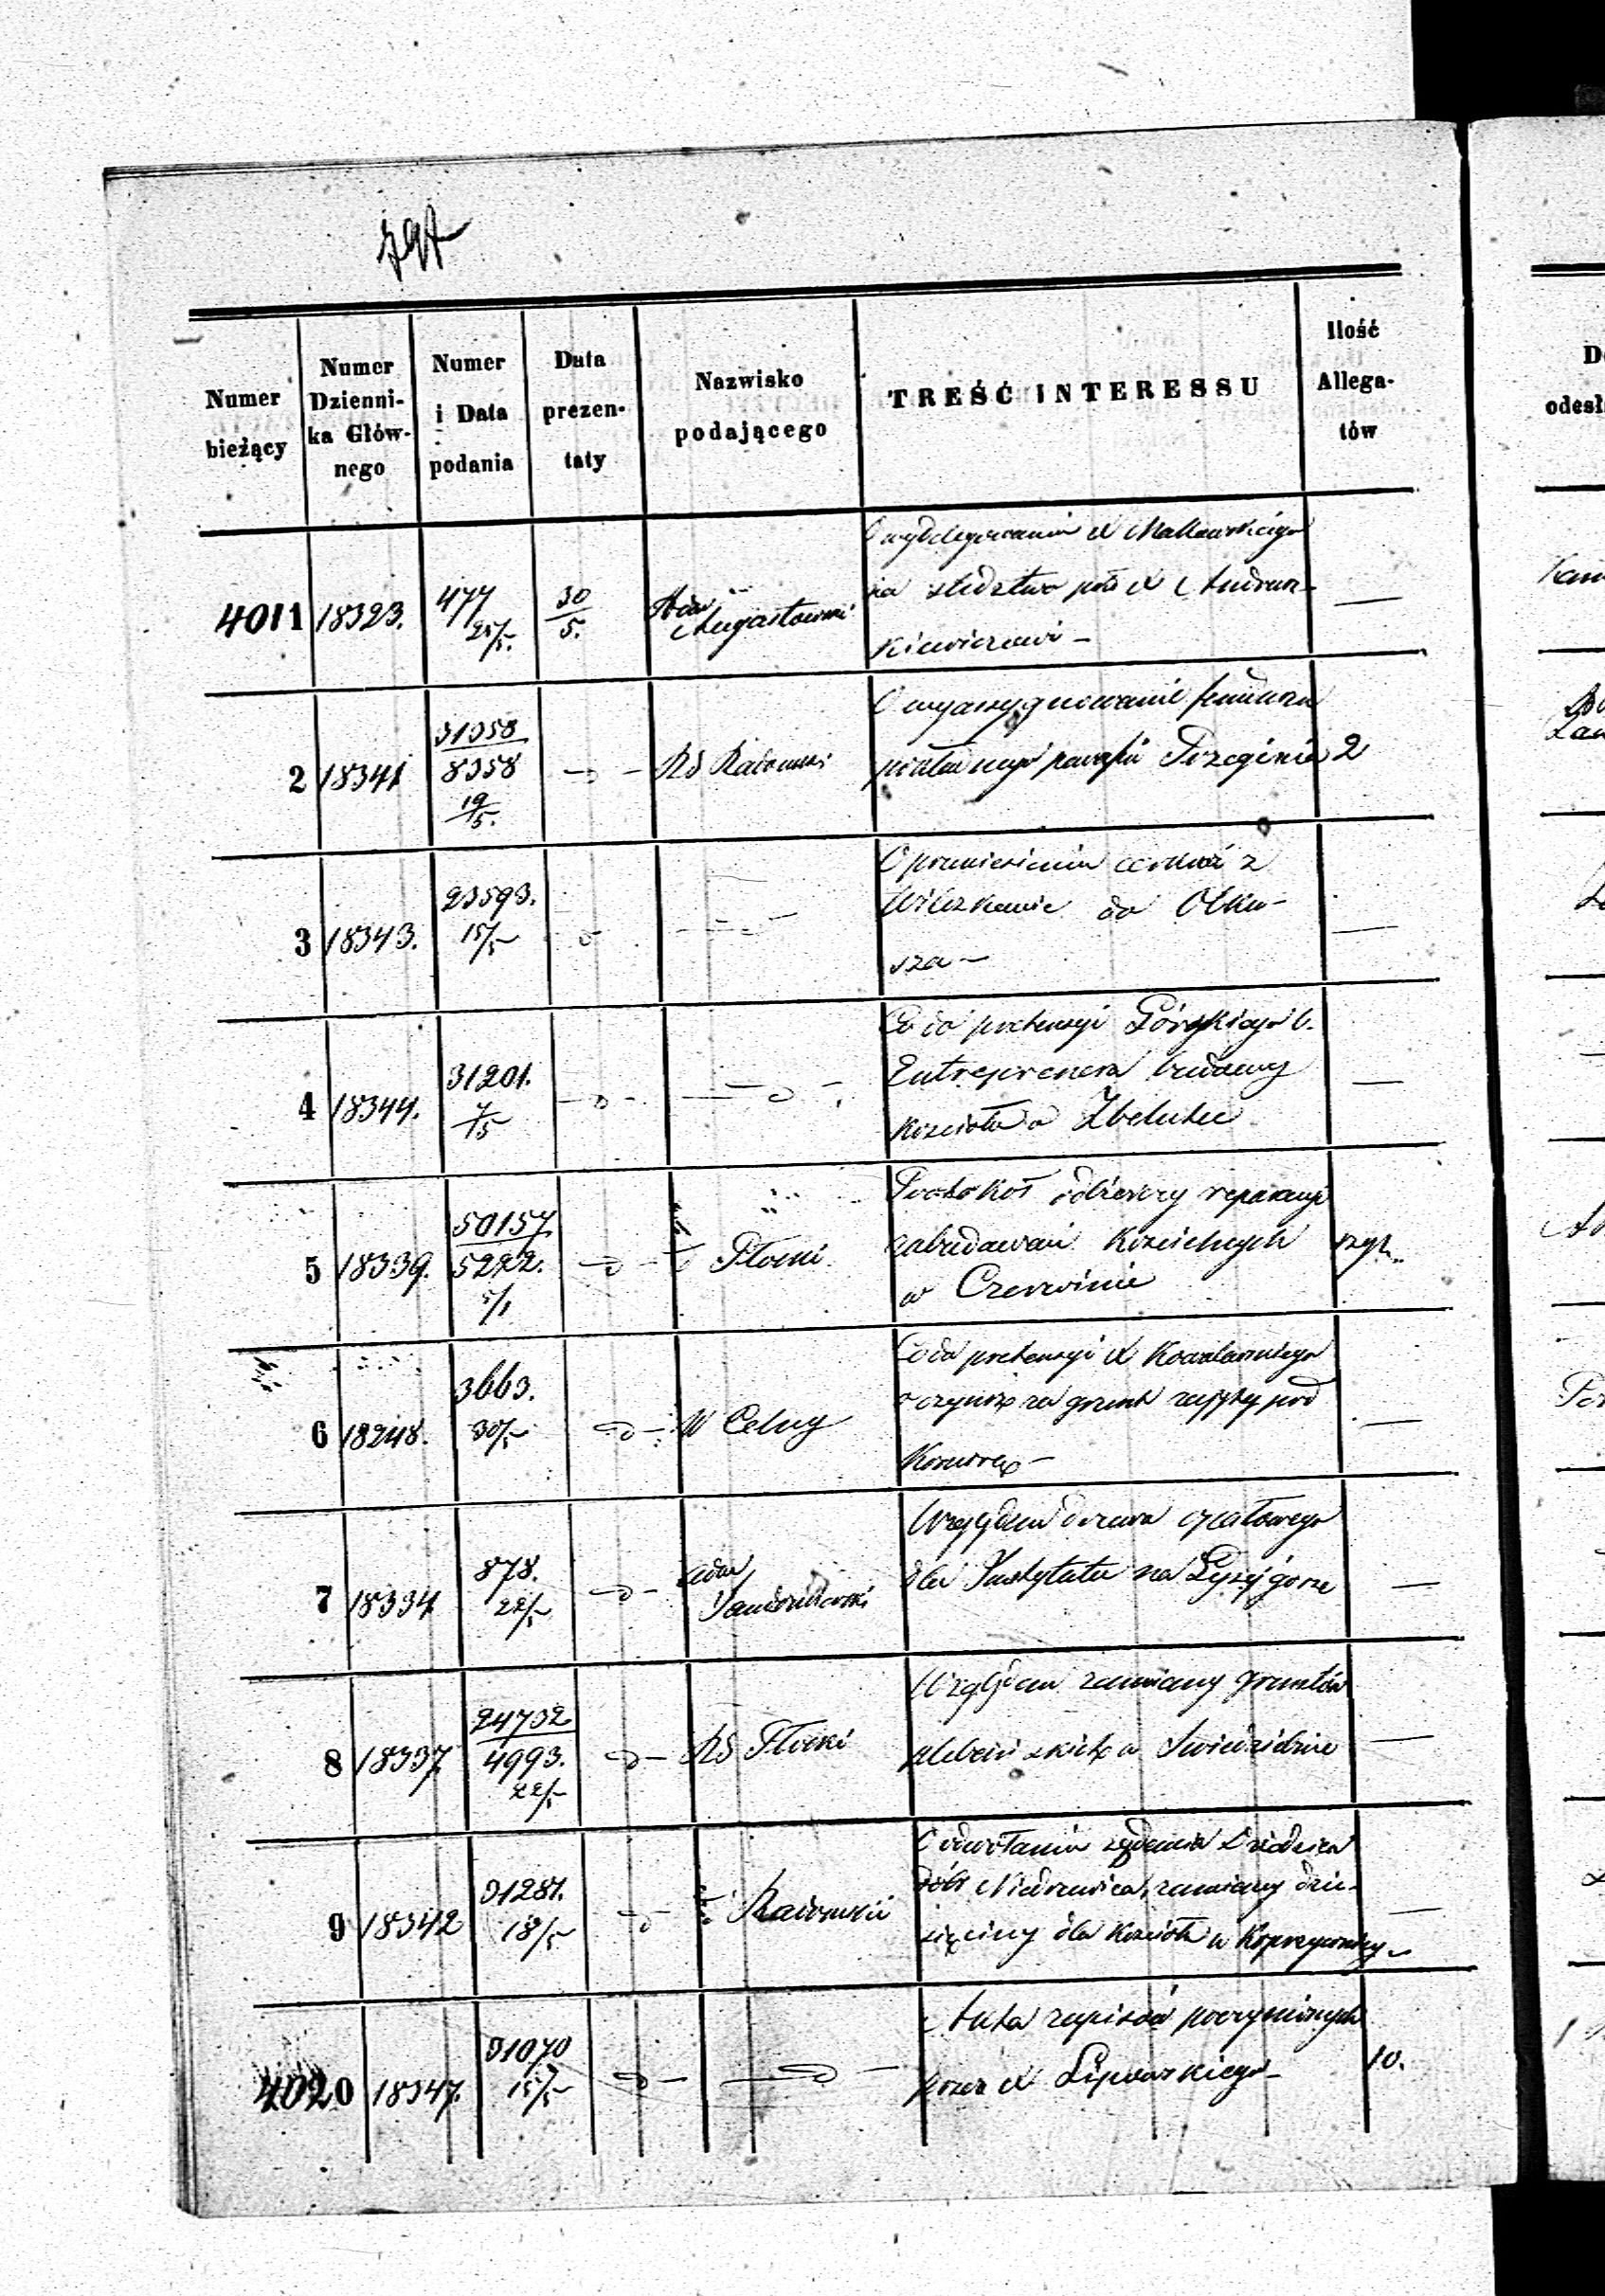 Numer bieżący
Numer Dzienni-ka Głów-nego
Numer i Data podania
Data prezen-taty
Nazwisko podającego
TREŚĆ INTERESSU
Ilość Allega-tów
4011 18323. 477 25/5. 30/5. Adm Augustowski
O wydelegowanie X Makowskiego
na śledztwo prko X Andrusz-
kiewiczowi –
2 18341 31358/8358 19/5. RG Radomski
O wyassygnowanie funduszu
parafii Przeginia 2
3 18343. 23593. 15/5
O przeniesienie cerkwi z
do Olku-
sza –
4 18344. 31201. 7/5
Co do pretensyi Górskiego b.
Entreprenera budowy
kościoła w Zbelutce
5 18339. 50157/5272. 5/5 Płocki
Protokół odbiorczy reparacyi
zabudowań kościelnych
w Czerwinie
6 18248. 3663. 30/5 W Celny
Co do pretensyi X
o czynsz za grunt zajęty pod
7 18334 878. 22/5 Adm Sandomierski
Względem drzewa opałowego
dla Instytutu na Łysej górze
8 18337. 24732/4993. 22/5 RG Płocki
Względem zamiany gruntów
plebańskich w Swiedziebnie
9 18342 31281. 18/5 Radomski
O odwołanie żądania Dziedzica
dóbr zamiany dzie-
sięciny dla kościoła w Koprzywnicy –
4020 18347. 31070 15/5
Akta zapisów poczynionych
przez X Lipowskiego – 10.